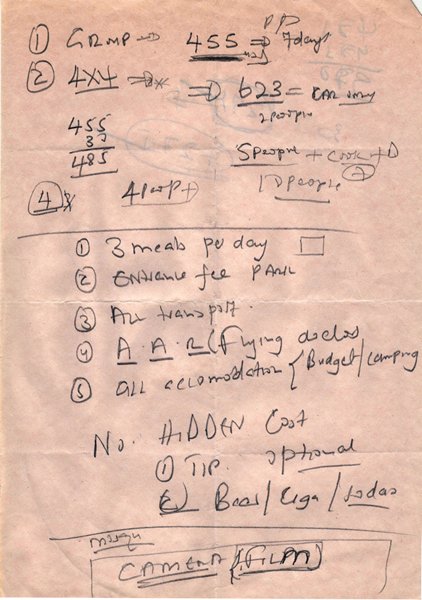 P/P
① GROUP → 455 ⇒ 7 days
② 4x4 ⇒ ⇒ 623 = CAR only
2 people
455
30
485
5 people + cook + D
④ 4 people + 10 people ⑦
① 3 meals per day
② entrance fee PARK
③ ALL transport.
④ A.A.R (Flying doctors
⑤ all accomodation { Budget / camping
No. HiDDEN Cost
① TIP. optional
② Beer / / sodas
CAMERA (FILM)